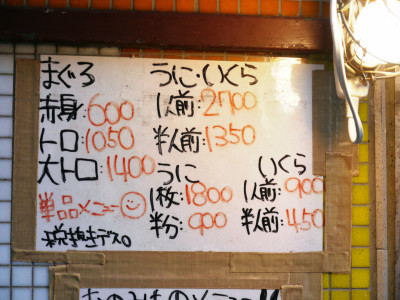 まぐろ
赤身:600
トロ:1050
大トロ:1400
単品メニュー
税抜きデス。
うに・いくら
1人前:2700
半人前:1350
うに
1枚:1800
半分:900
いくら
1人前:900
半人前:450
おのみものメニュー!!